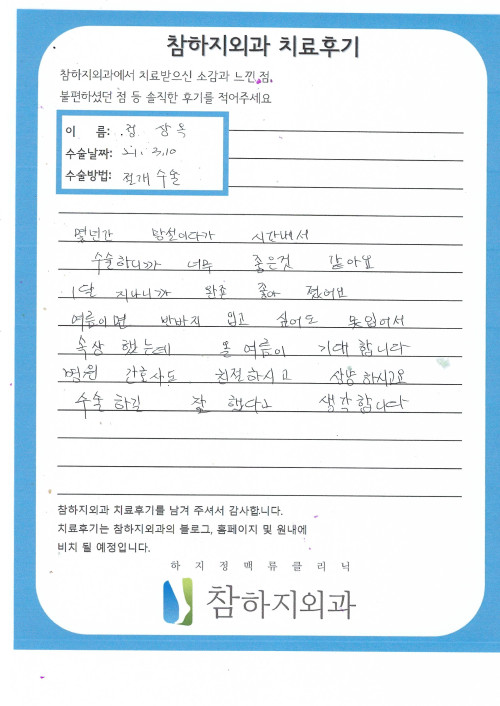 참하지외과 치료후기
참하지외과에서 치료받으신 소감과 느낀 점,
불편하셨던 점 등 솔직한 후기를 적어주세요
이 름: 정 상옥
수술날짜: 21. 3.10
수술방법: 절개 수술
몇년간 망설이다가 시간내서
수술하니까 너무 좋은것 같아요
1달 지나니까 완존 좋아 졌어요
여름이면 반바지 입고 싶어도 못입어서
속상 했는데 올 여름이 기대 합니다
병원 간호사도 친절하시고 상냥 하시고요
수술 하길 잘 했다고 생각합니다
참하지외과 치료후기를 남겨 주셔서 감사합니다.
치료후기는 참하지외과의 블로그, 홈페이지 및 원내에
비치 될 예정입니다.
하지정맥류클리닉
참하지외과